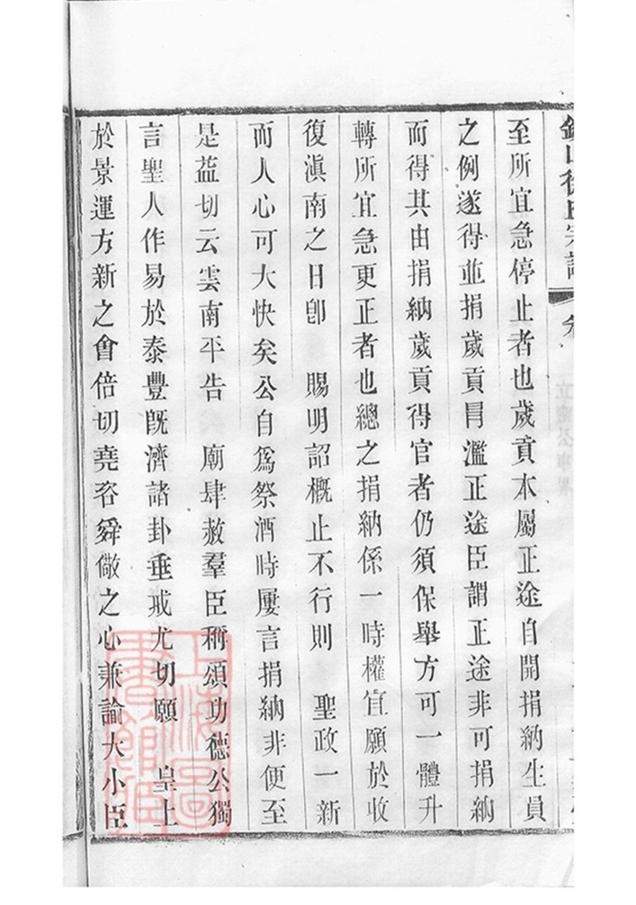 至所宜急停止者也歲貢本屬正途自開捐納生員
之例遂得並捐歲貢冐濫正途臣謂正途非可捐納
而得其由捐納歲貢得官者仍須保舉方可一體升
轉所宜急更正者也總之捐納係一時權宜願於收
復滇南之日卽 賜明詔槪止不行則 聖政一新
而人心可大快矣公自爲祭酒時屢言捐納非便至
是益切云雲南平告 廟肆赦羣臣稱頌功德公獨
言聖人作易於泰豐旣濟諸卦垂戒尤切願 皇上
於景運方新之會倍切堯咨舜儆之心兼諭大小臣